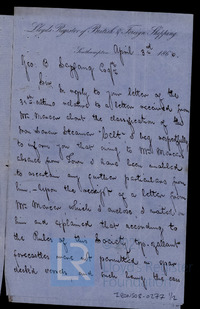 Lloyd's Register of British & Foreign Shipping
Southampton April 3rd 186
Geo. B. Seyfang Esqre
Sir
In reply to your letter of the
31st ultimo relative to a letter received from
Mr Mercer about the classification of the
Iron Screw Steamer "Celt" I beg respectfully
to inform you that owing to Mr Mercer's
absence from Town I have been unable
to ascertain any further particulars from
him, upon the receipt of a letter from
Mr Mercer which I enclose I waited on
him and explained that according to
the Rules of the Society top-gallant
forecastles were not permitted in spar
decked vessels and such being the case
LR
Foundation
1/2